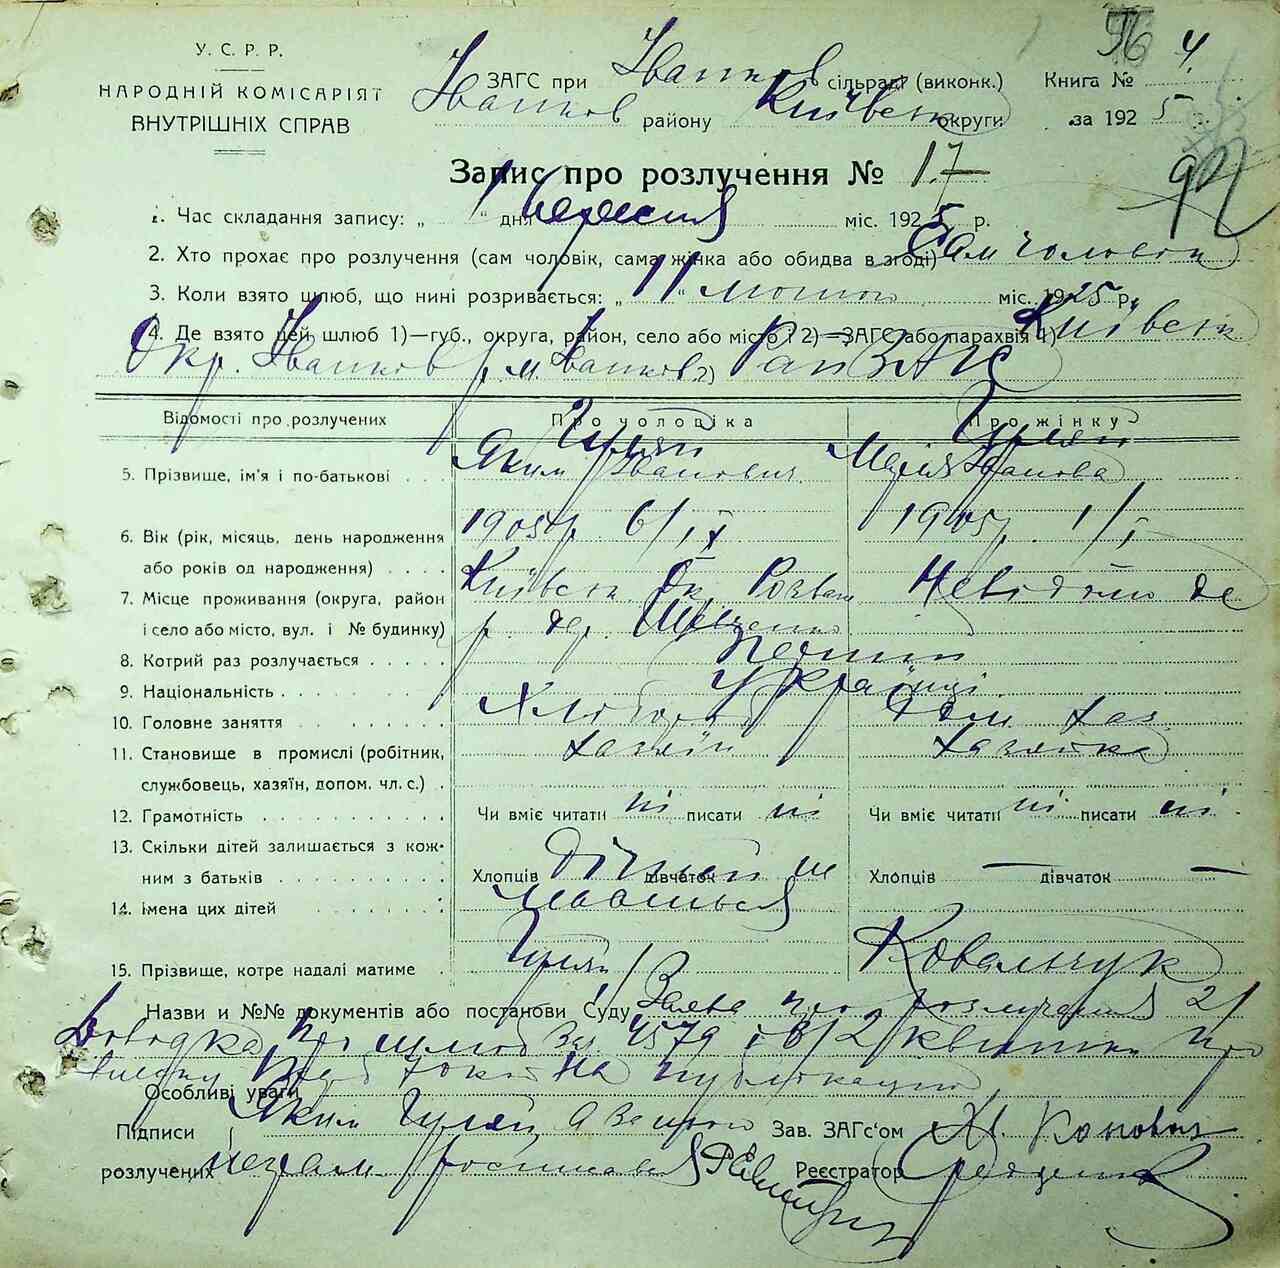 У. С. Р. Р.
НАРОДНІЙ КОМІСАРІЯТ
ВНУТРІШНІХ СПРАВ
ЗАГС при Іванков сільраді (виконк.) Книга № 4
Іванков району Київськ округи за 1925 р.
Запис про розлучення № 17
92
1. Час складання запису: „1“ дня вересня міс. 1925 р.
2. Хто прохає про розлучення (сам чоловік, сама жінка або обидва в згоді) Сам чоловік
3. Коли взято шлюб, що нині розривається: „11“ лютого міс. 1925 р.
4. Де взято цей шлюб 1)—губ., округа, район, село або місто і 2)—ЗАГС або парахвія 1) Київськ
Окр. Іванков р. м. Іванков 2) РайЗАГС
Відомості про розлучених Про чоловіка Про жінку
5. Прізвище, ім'я і по-батькові Яким Іванович Марія Іванова
6. Вік (рік, місяць, день народження 1905 р. 6/IX 1905 р. 1/I
або років од народження)
7. Місце проживання (округа, район Київськ Ок. Розваж Невідомо де
і село або місто, вул. і № будинку) р. дер. Шевченко
8. Котрий раз розлучається Перший
9. Національність Українці
10. Головне заняття Хлібороб Дом. хаз.
11. Становище в промислі (робітник, хазяїн хазяйка
службовець, хазяїн, допом. чл. с.)
12. Грамотність Чи вміє читати ні писати ні Чи вміє читати ні писати ні
13. Скільки дітей залишається з кож-
ним з батьків Хлопців дітьей дівчаток не Хлопців — дівчаток —
14. Імена цих дітей
15. Прізвище, котре надалі матиме Ковальчук
Назви и №№ документів або постанови Суду Заява про розлучення 2/
Довідка про шлюб за № 4579 і 3/ 2 квитки про
на публікацію
Особливі уваги
Підписи Яким а за його Зав. ЗАГс'ом
розлучених неграм. росписався Реєстратор